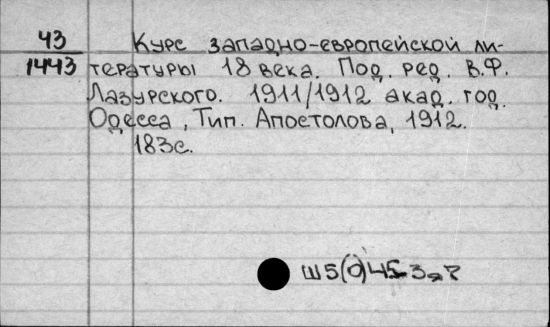 43 Курс западно-европейской ли-
1443 тературы 18 века. Под. ред. В.Ф.
Лазурского. 1911/1912 акад. год.
Одесса, Тип. Апостолова, 1912.
183с.
Ш5(0)